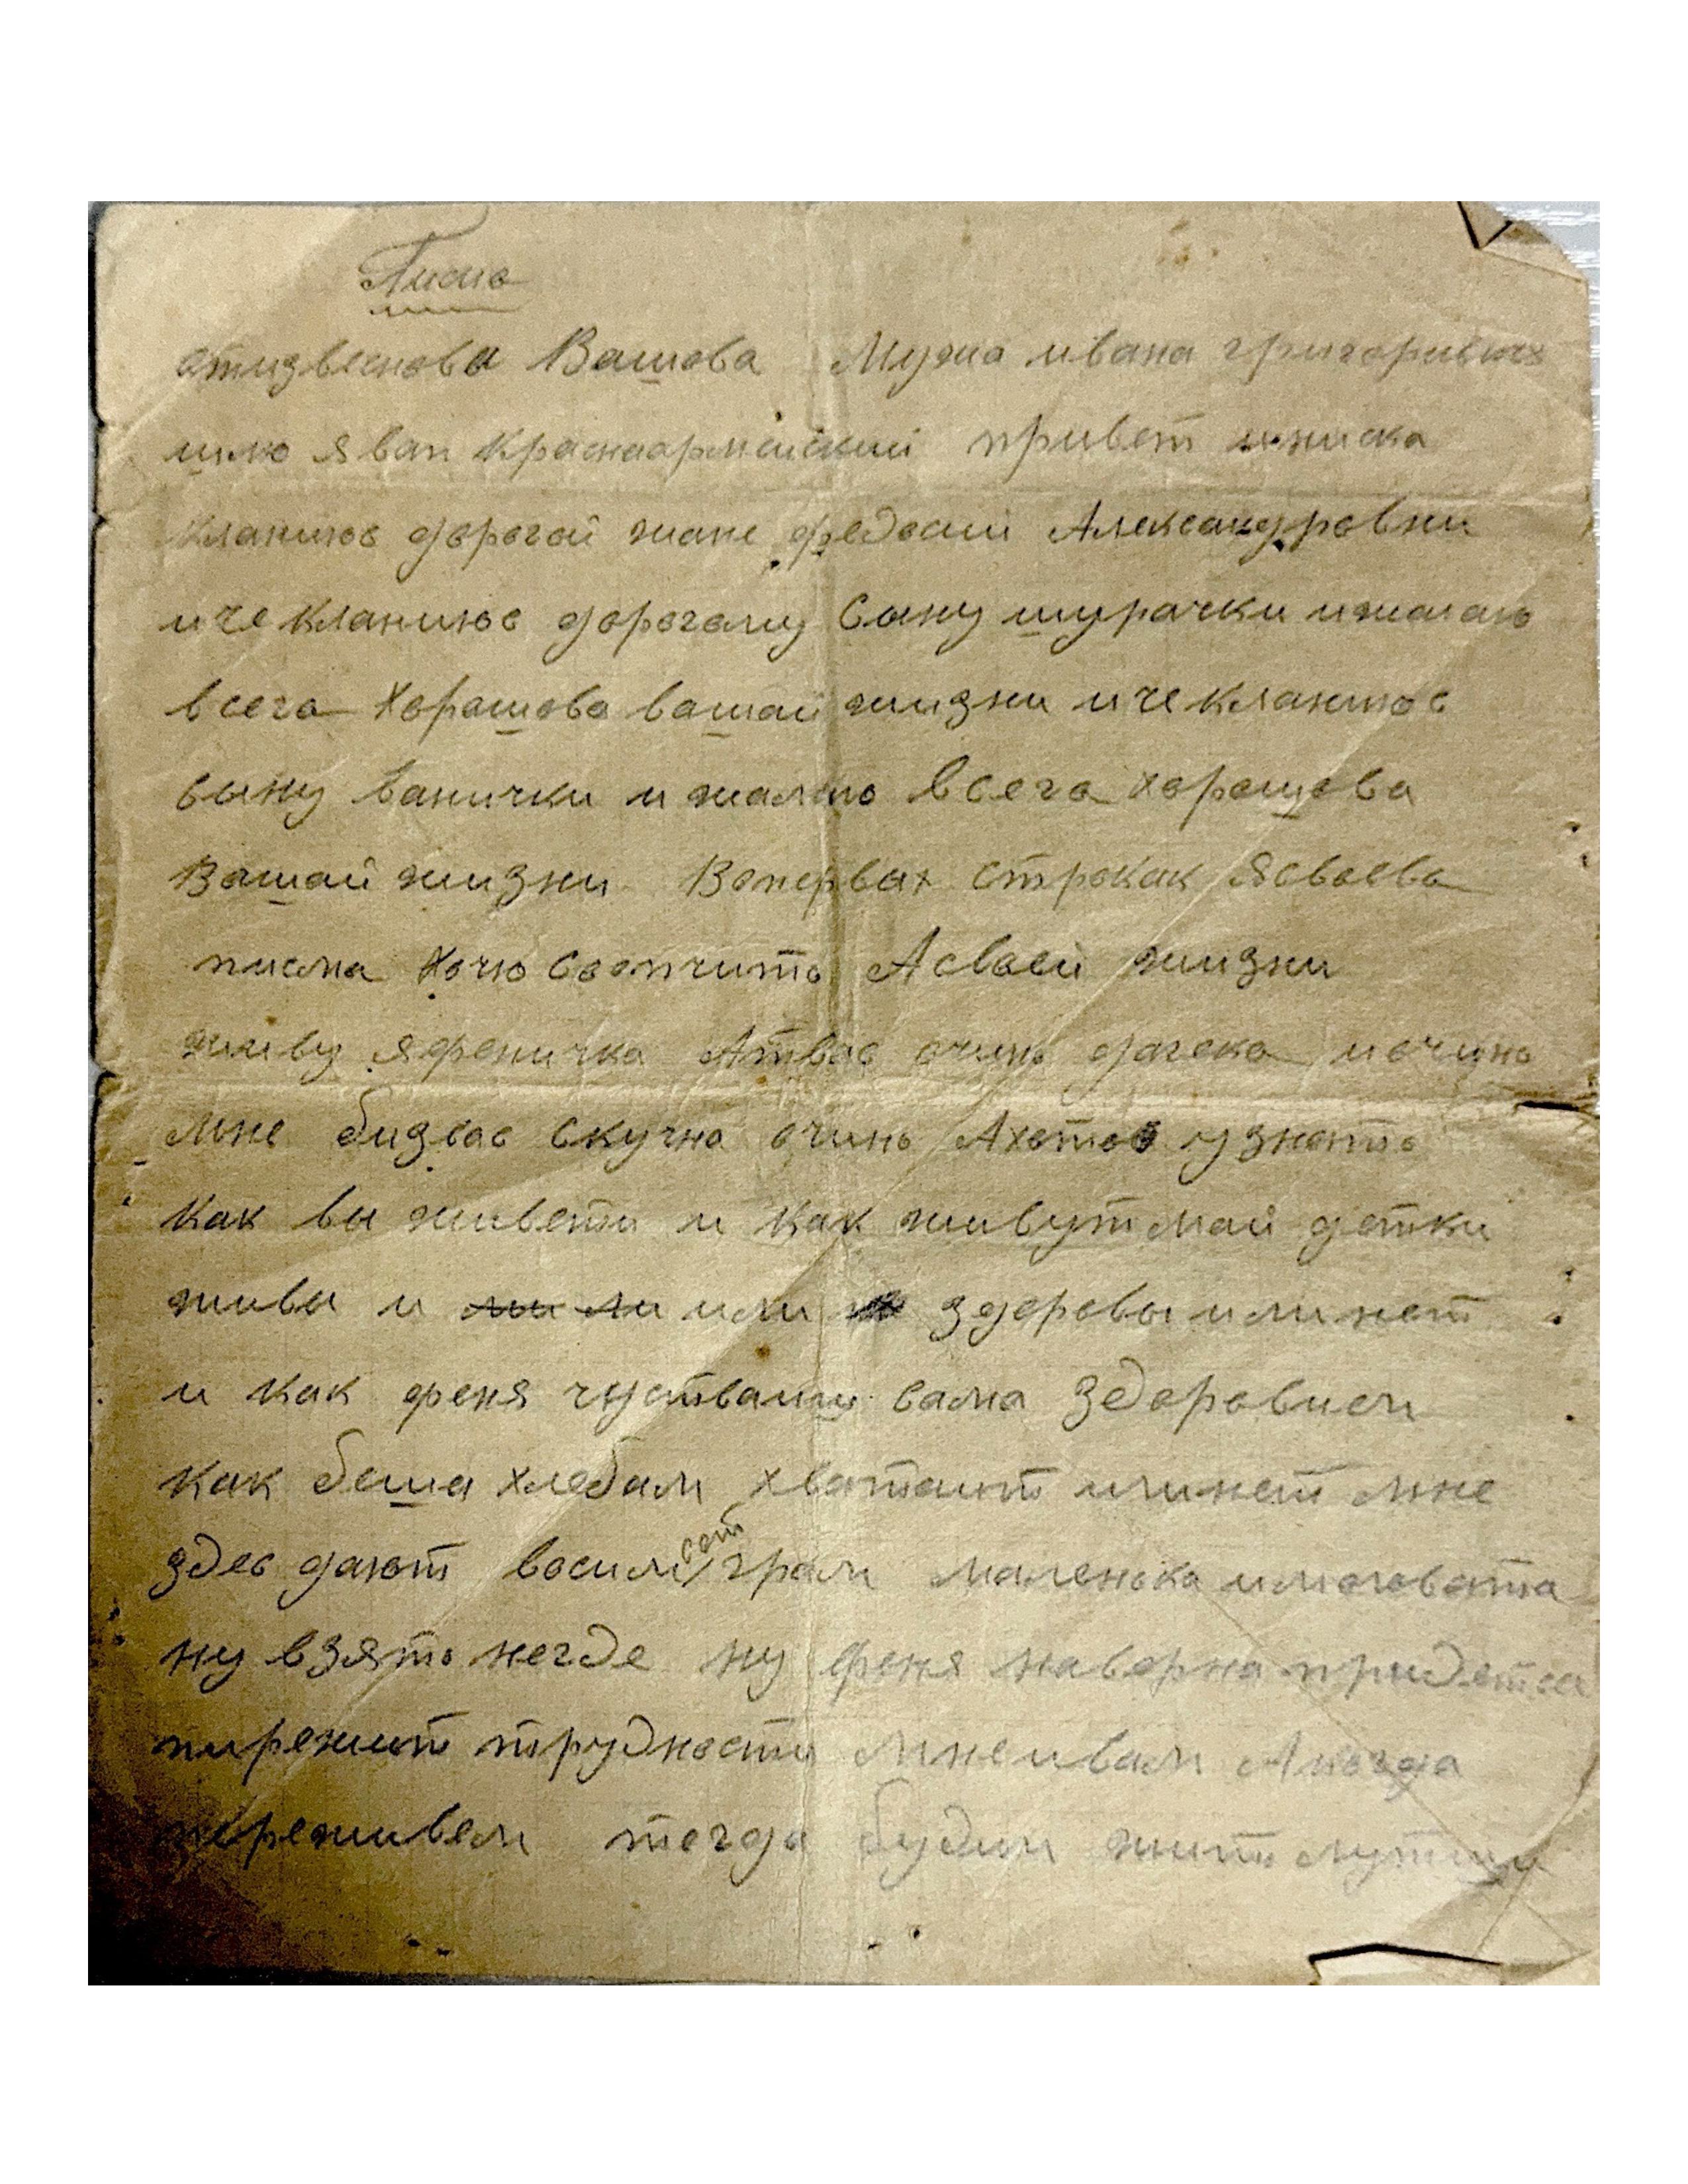 Писмо
атизвеснова Вашова Мужа ивана григоривича
шлю я вам Краснаармейский привет и ниска
кланиюс дорогой жане федосии Александровни
иче кланиюс дорогому Сыну шурачки и жалаю
всего Хорашова вашай жизни иче кланиюс
сыну ванички и жалаю всего хорошова
Вашай жизни Вопервых строках ясваево
писма хочю соопчить Асваей жизни
живу яфеничка Атвас очинь далеко иочинь
мне бизвас скучно очинь Ахота узнать
Как вы живети и как живут маи детки
живы и или здоровы илинет
и как феня чуствании сама здоровием
как беша хлебам хватаит илинет мне
здес дают восимсот грам маленька ималовата
ну взять негде ну феня наверна придетса
пирежит трудности мне ивам Акогда
переживем тогда будим жить лутши